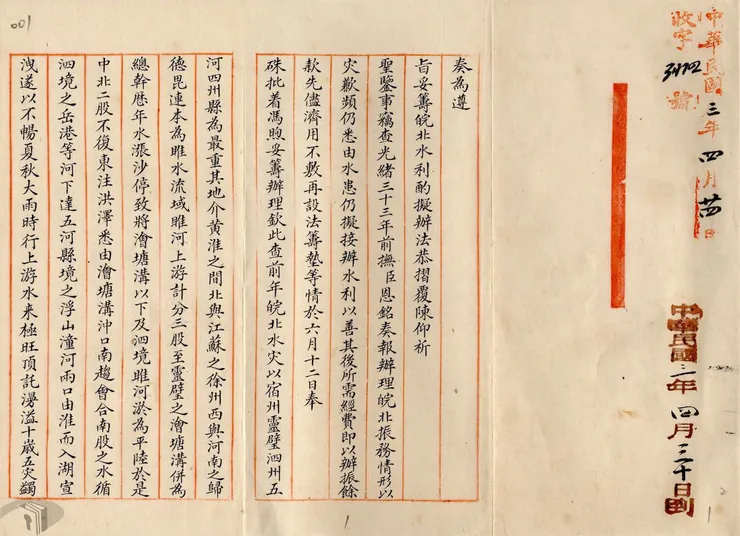 中華民國三年四月廿四日
收字 號
中華民國三年四月三十日到
奏為遵
旨妥籌皖北水利酌擬辦法恭摺覆陳仰祈
聖鑒事竊查光緒三十三年前撫臣恩銘奏報辦理皖北振務情形以
災歉頻仍悉由水患仍擬接辦水利以善其後所需經費即以辦振餘
款先儘濟用不敷再設法籌墊等情於六月十二日奉
硃批着馮煦妥籌辦理欽此查前年皖北水災以宿州靈璧泗州五
河四州縣為最重其地介黃淮之間北與江蘇之徐州西與河南之歸
德毘連本為睢水流域睢河上游計分三股至靈璧之澮塘溝併為
總幹歷年水漲沙停致將澮塘溝以下及泗境睢河淤為平陸於是
中北二股不復東注洪澤悉由澮塘溝沖口南趨會合南股之水循
泗境之岳港等河下達五河縣境之浮山潼河兩口由淮而入湖宣
洩遂以不暢夏秋大雨時行上游水來極旺頂託漫溢十歲五災蠲
001
1